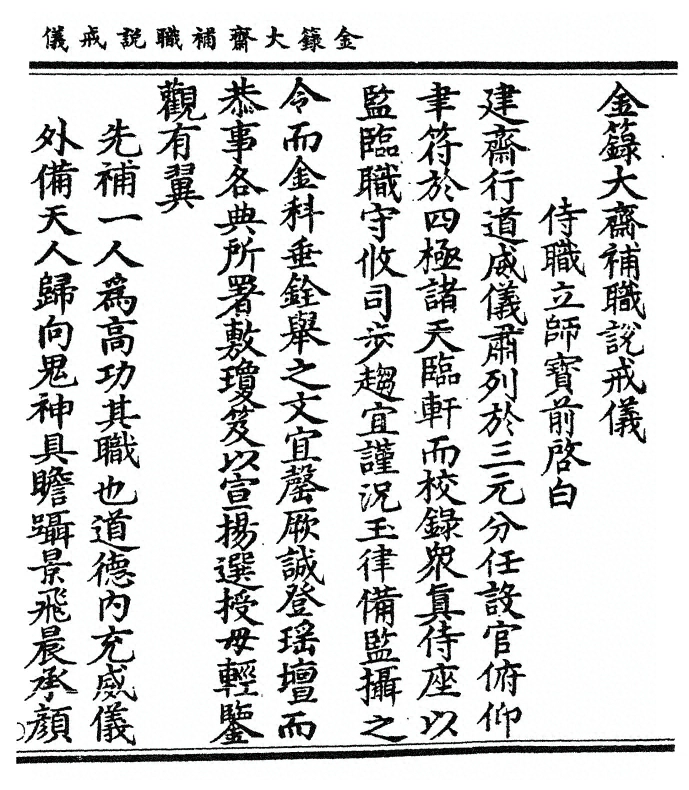 金籙大齋補職說戒儀
金籙大齋補職說戒儀
侍職立師寶前啓白
建齋行道威儀肅列於三元分任設官俯仰
聿符於四極諸天臨軒而校錄衆眞侍座以
監臨職守攸司步趨宜謹況玉律備監攝之
令而金科垂銓舉之文宜罄厥誠登瑶壇而
恭事各典所署敷瓊笈以宣揚選授毋輕鑒
觀有翼
先補一人爲高功其職也道德內充威儀
外備天人歸向鬼神具瞻躡景飛晨承顔